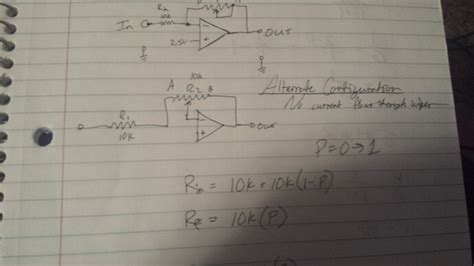 In
Rin
10k
2.5V
OUT
10k
A R2 B
Alternate Configuration
No current flows through wiper
R1
10k
OUT
P=0→1
Rin = 10k + 10k(1-P)
RF = 10k(P)